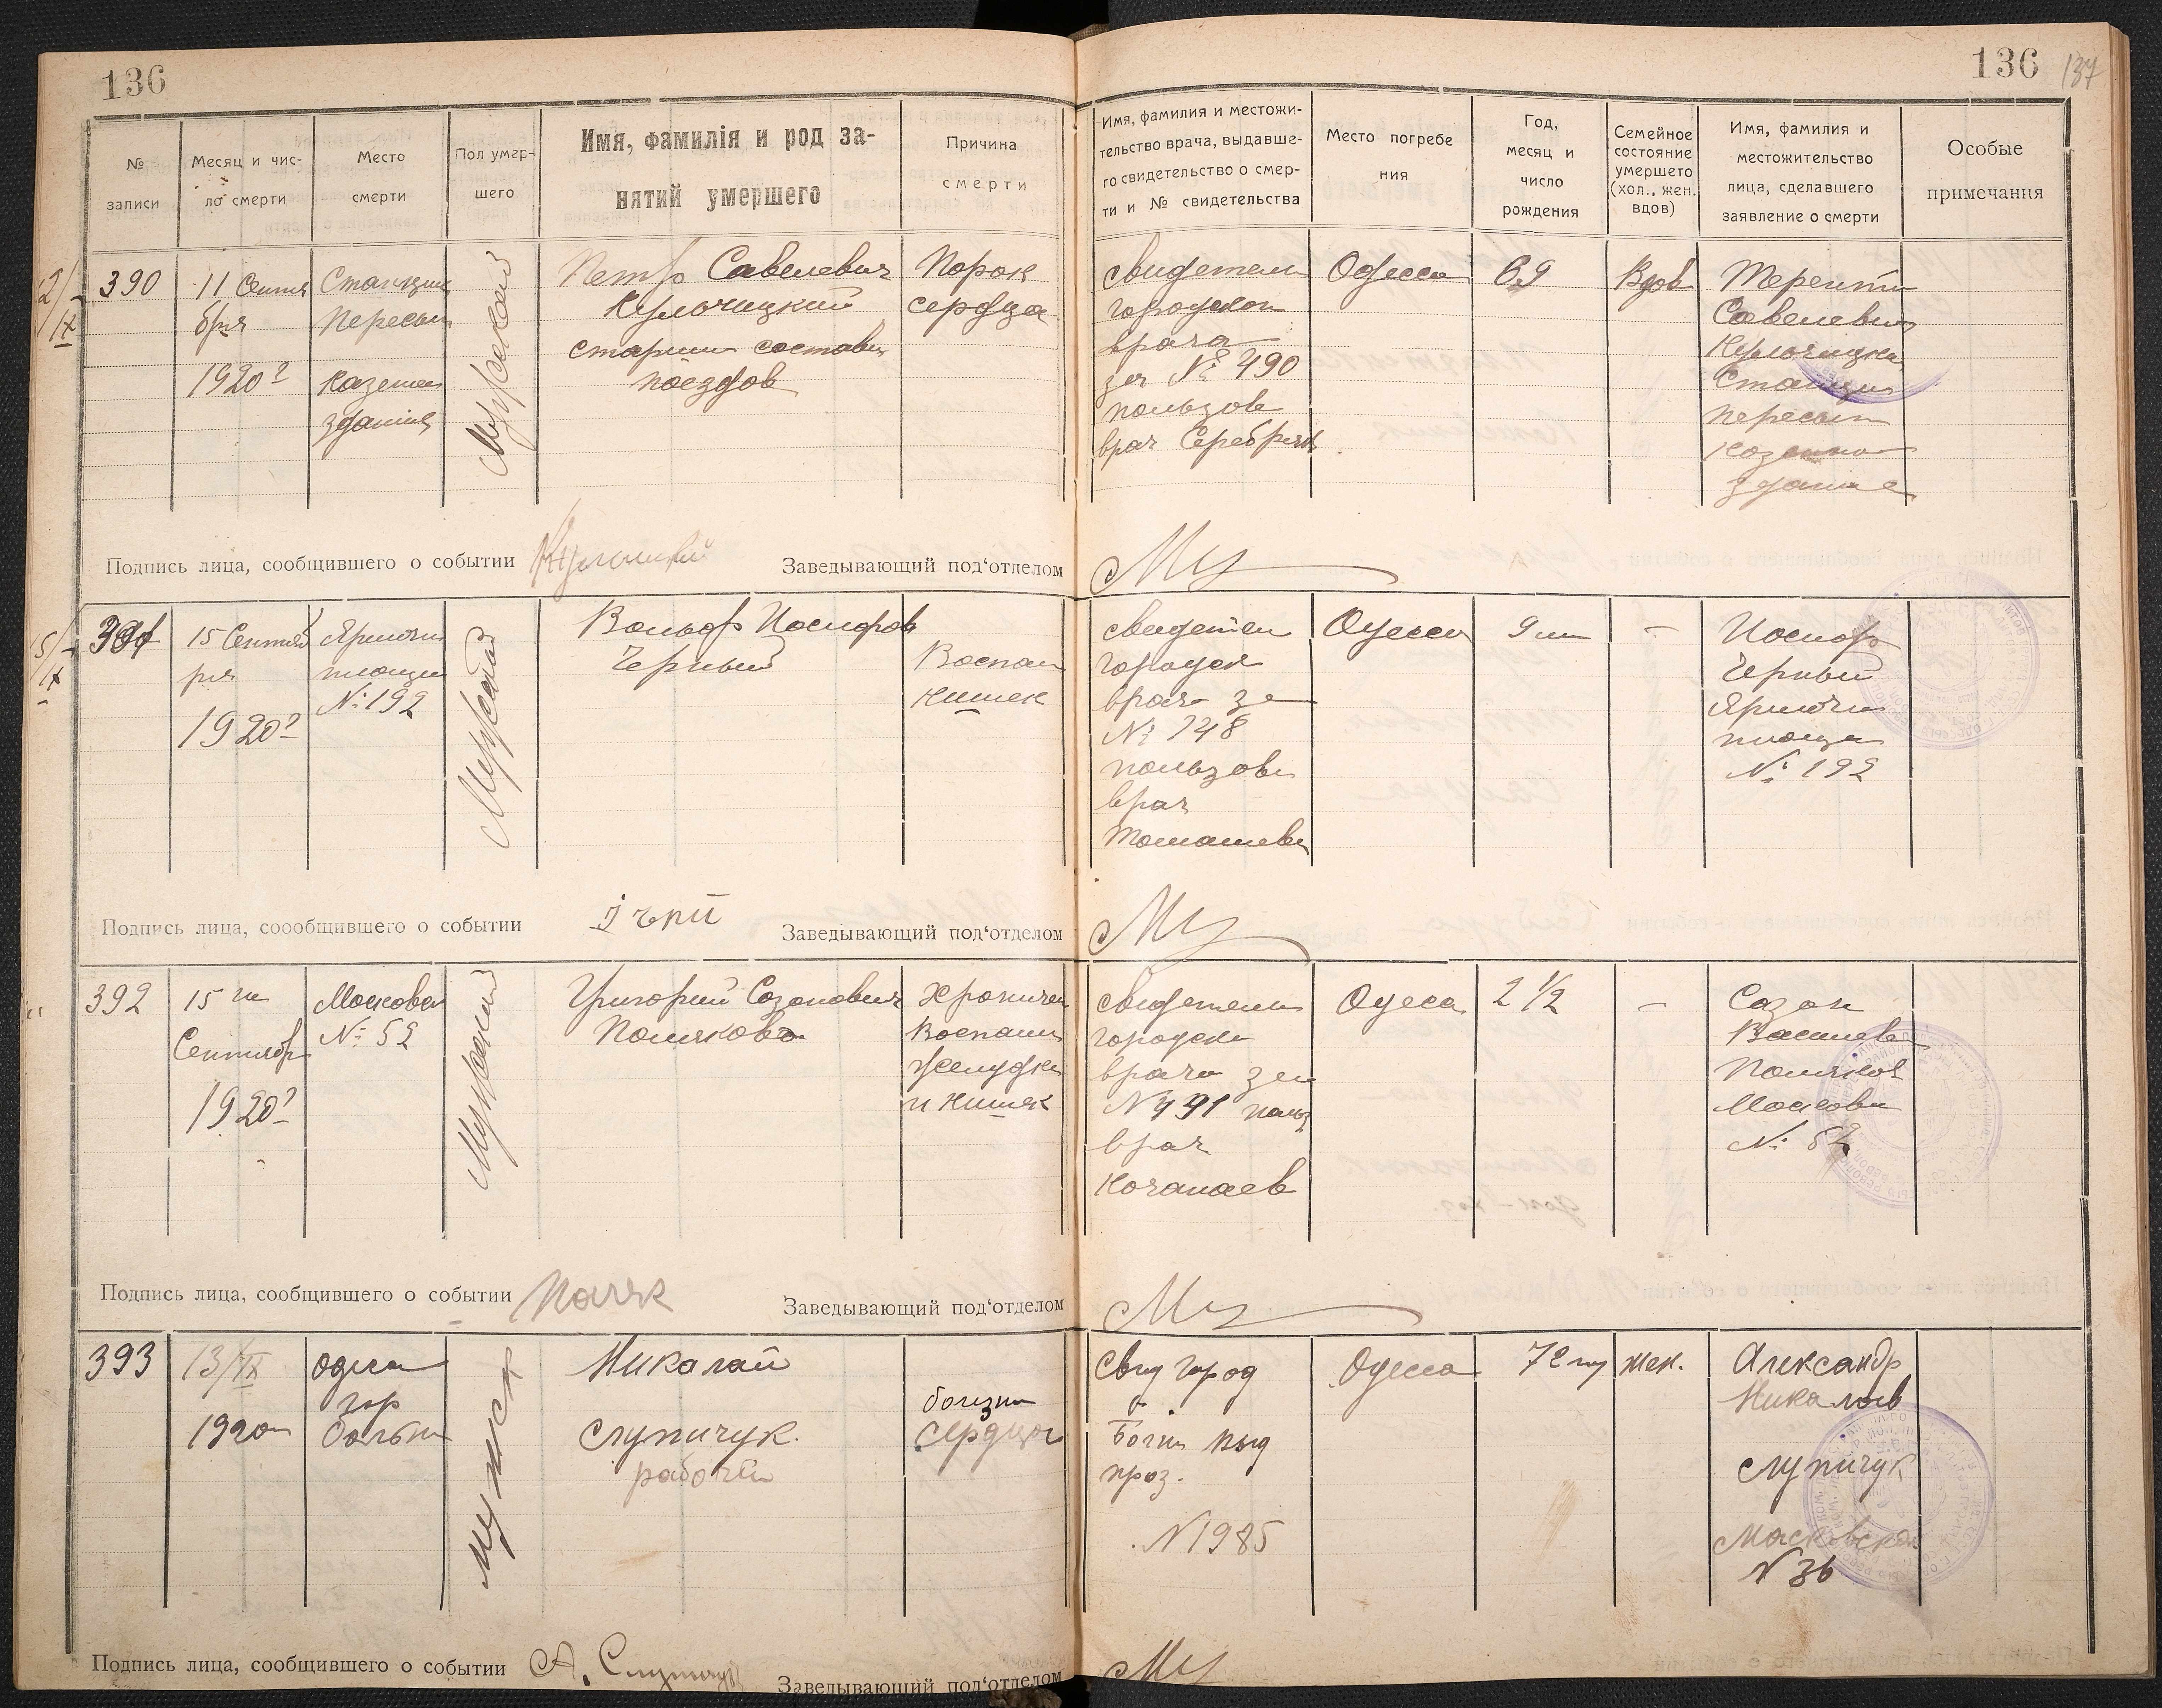 136
136
137
№
записи
Месяц и чис-
ло смерти
Место
смерти
Пол умер-
шего
Имя, фамилія и род за-
нятий умершего
Причина
смерти
Имя, фамилия и местожи-
тельство врача, выдавше-
го свидетельство о смер-
ти и № свидетельства
Место погребе
ния
Год,
месяц и
число
рождения
Семейное
состояние
умершего
(хол., жен.
вдов)
Имя, фамилия и
местожительство
лица, сделавшего
заявление о смерти
Особые
примечания
390
11 Сентя
бря
1920 г
Станция
Пересып
казенн
здание
Мужской
Петр Савелевич
поездов
Порок
сердца
Свидетел
городског
врача
за № 490
пользов
врач
Одесса
69
Вдов
Терентий
Савелевич
Станция
Пересып
казенно
здание
Подпись лица, сообщившего о событии
Заведывающий под'отделом
391
15 Сентяб
ря
1920 г
площ
№ 192
Мужской
Вольф Иосифов
Черный
Воспал
кишек
Свидетел
городск
врача за
№ 748
пользов
врач
Томашев
Одесса
9 м
—
Иосиф
Черный
площа
№ 192
Подпись лица, соообщившего о событии
Заведывающий под'отделом
392
15 го
Сентябр
1920 г
Московск
№ 52
Мужской
Григорий Созонович
Поляков
Хроничес
Воспален
желудка
и кишек
Свидетел
городско
врача за
№ 491 польз
врач
Одеса
2 ½
—
Созон
Василев
Поляков
Московск
№ 52
Подпись лица, сообщившего о событии
Заведывающий под'отделом
393
13/IX
1920 г
Одесса
гор
больн
Мужск
Николай
Слупичук.
рабочий
болезни
сердца
Свид город
№ 1985
Одесса
72 г
жен.
Александр
Николаев
Слупичук
Московская
№ 36
Подпись лица, сообщившего о событии
Заведывающий под'отделом